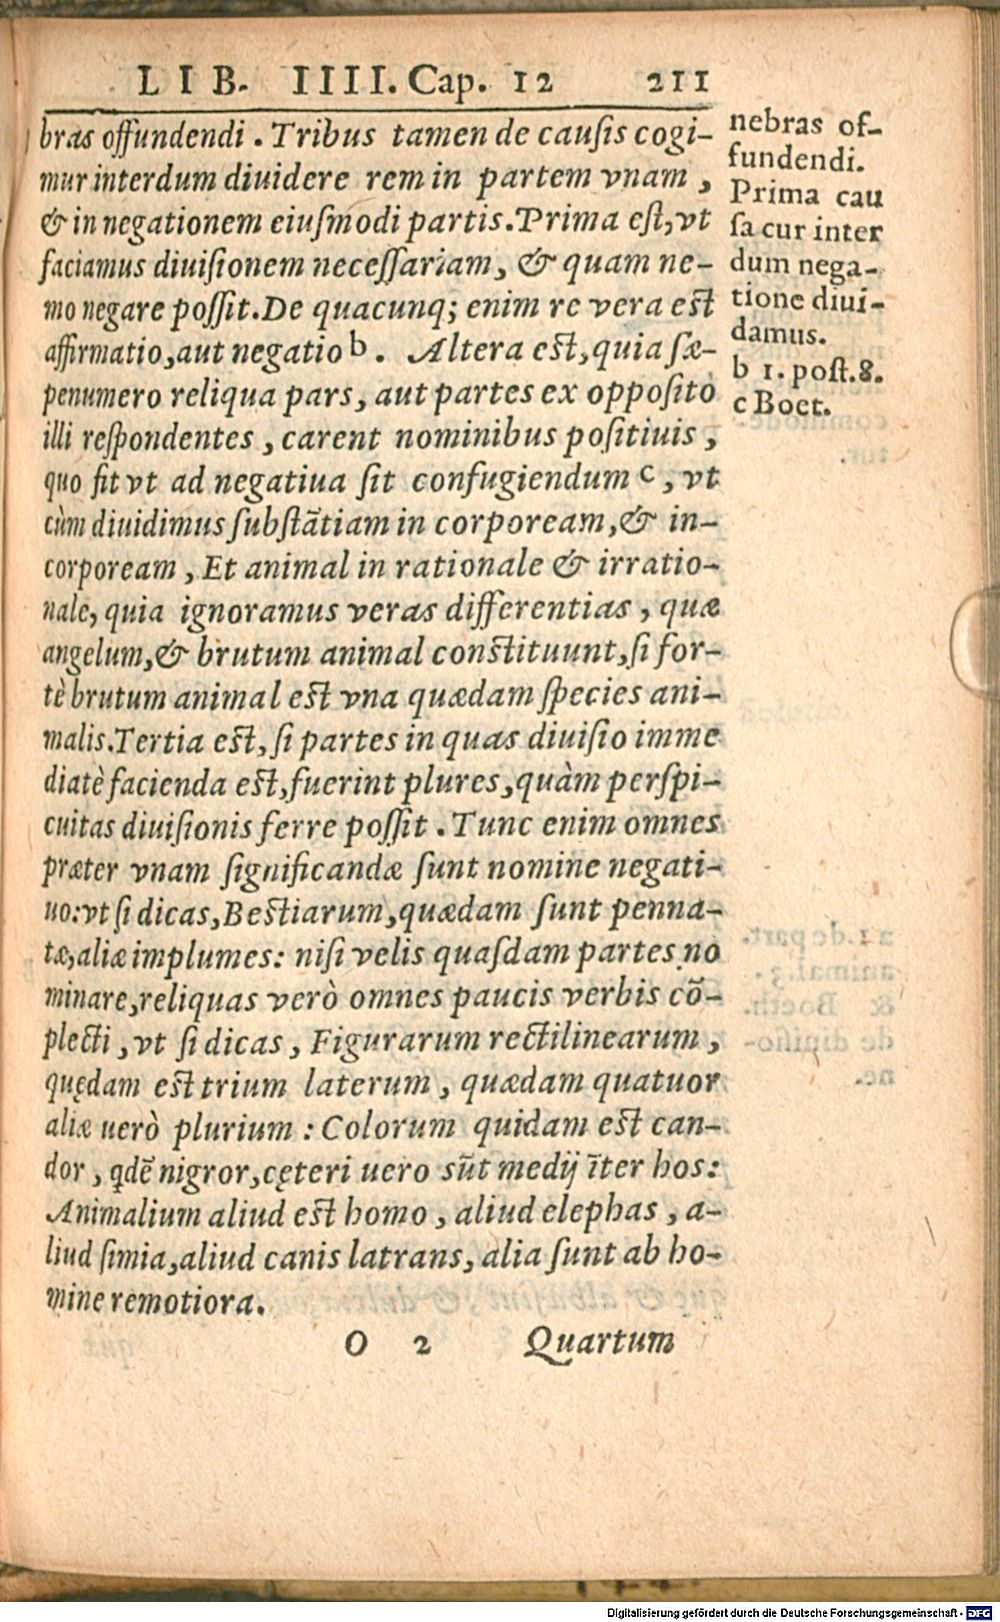 LIB. IIII. Cap. 12 211
bras offundendi. Tribus tamen de causis cogi-
mur interdum diuidere rem in partem vnam,
& in negationem eiusmodi partis. Prima est, vt
faciamus diuisionem necessariam, & quam ne-
mo negare possit. De quacunq; enim re vera est
affirmatio, aut negatio b. Altera est, quia sæ-
penumero reliqua pars, aut partes ex opposito
illi respondentes, carent nominibus positiuis,
quo fit vt ad negatiua sit confugiendum c, vt
cùm diuidimus substātiam in corpoream, & in-
corpoream, Et animal in rationale & irratio-
nale, quia ignoramus veras differentias, quæ
angelum, & brutum animal constituunt, si for-
tè brutum animal est vna quædam species ani-
malis. Tertia est, si partes in quas diuisio imme
diatè facienda est, fuerint plures, quàm perspi-
cuitas diuisionis ferre possit. Tunc enim omnes
præter vnam significandæ sunt nomine negati-
uo: vt si dicas, Bestiarum, quædam sunt penna-
tæ, aliæ implumes: nisi velis quasdam partes no
minare, reliquas verò omnes paucis verbis cō-
plecti, vt si dicas, Figurarum rectilinearum,
quędam est trium laterum, quædam quatuor
aliæ uerò plurium: Colorum quidam est can-
dor, qdē nigror, cęteri uero sūt medij īter hos:
Animalium aliud est homo, aliud elephas, a-
liud simia, aliud canis latrans, alia sunt ab ho-
mine remotiora.
O 2 Quartum
nebras of-
fundendi.
Prima cau
sa cur inter
dum nega-
tione diui-
damus.
b 1. post. 8.
c Boet.
Digitalisierung gefördert durch die Deutsche Forschungsgemeinschaft - DFG